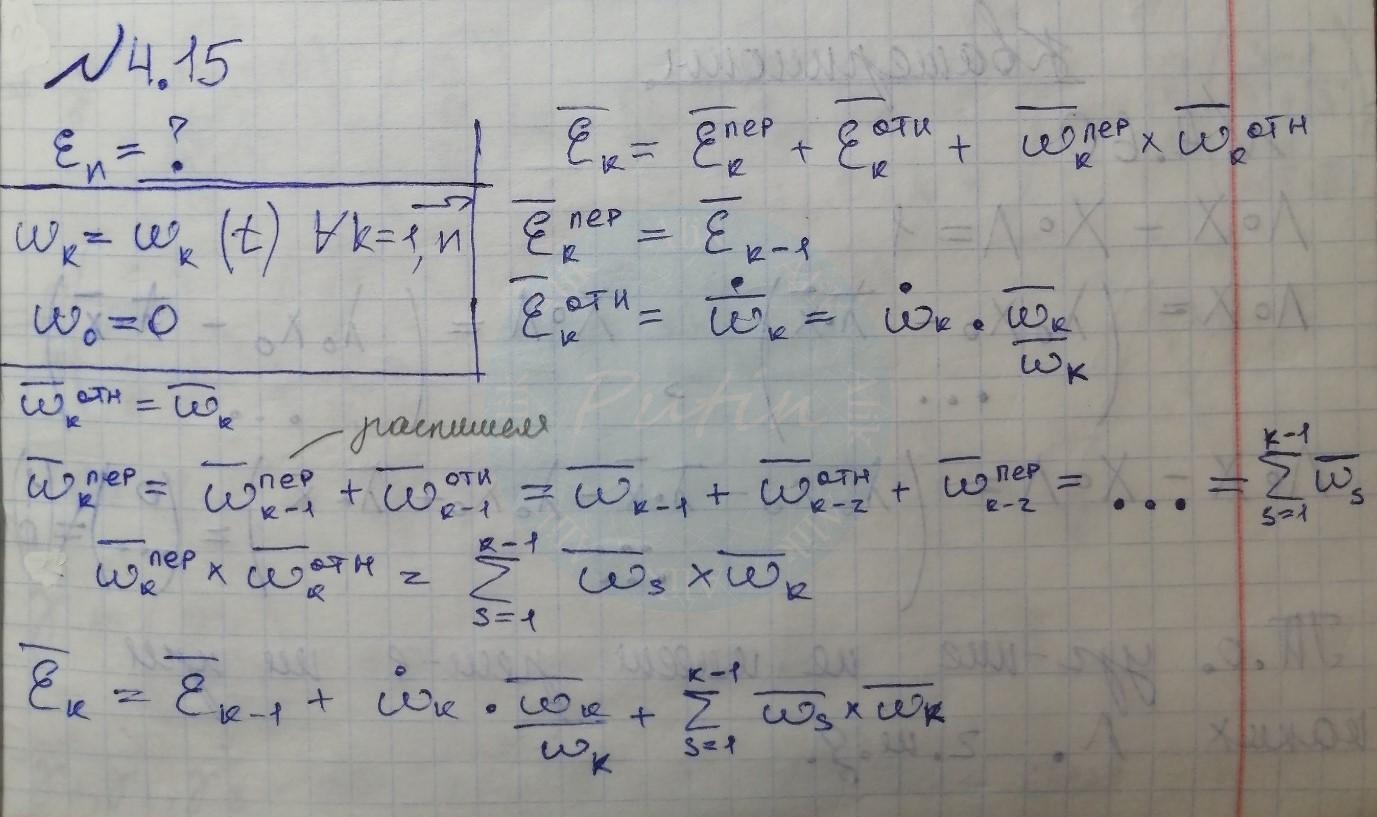 №4.15
εₙ = ?
ωₖ = ωₖ(t) ∀k=1,n
ω₀ = 0
ε̅ₖ = ε̅ₖ^пер + ε̅ₖ^отн + ω̅ₖ^пер × ω̅ₖ^отн
ε̅ₖ^пер = ε̅ₖ₋₁
ε̅ₖ^отн = ω̅̇ₖ = ω̇ₖ · ω̅ₖ/ωₖ
ω̅ₖ^отн = ω̅ₖ
распишем
ω̅ₖ^пер = ω̅ₖ₋₁^пер + ω̅ₖ₋₁^отн = ω̅ₖ₋₁ + ω̅ₖ₋₂^отн + ω̅ₖ₋₂^пер = ... = ∑_{s=1}^{k-1} ω̅ₛ
ω̅ₖ^пер × ω̅ₖ^отн = ∑_{s=1}^{k-1} ω̅ₛ × ω̅ₖ
ε̅ₖ = ε̅ₖ₋₁ + ω̇ₖ · ω̅ₖ/ωₖ + ∑_{s=1}^{k-1} ω̅ₛ × ω̅ₖ
Putin